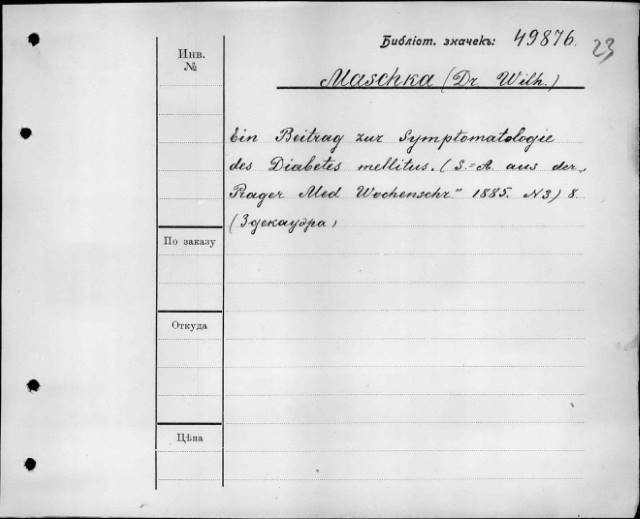 Библіот. значекъ: 49876.
23
Инв.
№
Maschka (Dr. Wilh.)
Ein Beitrag zur Symptomatologie
des Diabetes mellitus. (S.=A. aus der „
Prager Med Wochenschr." 1885. N3) 8.
(Здекауэра)
По заказу
Откуда
Цѣна